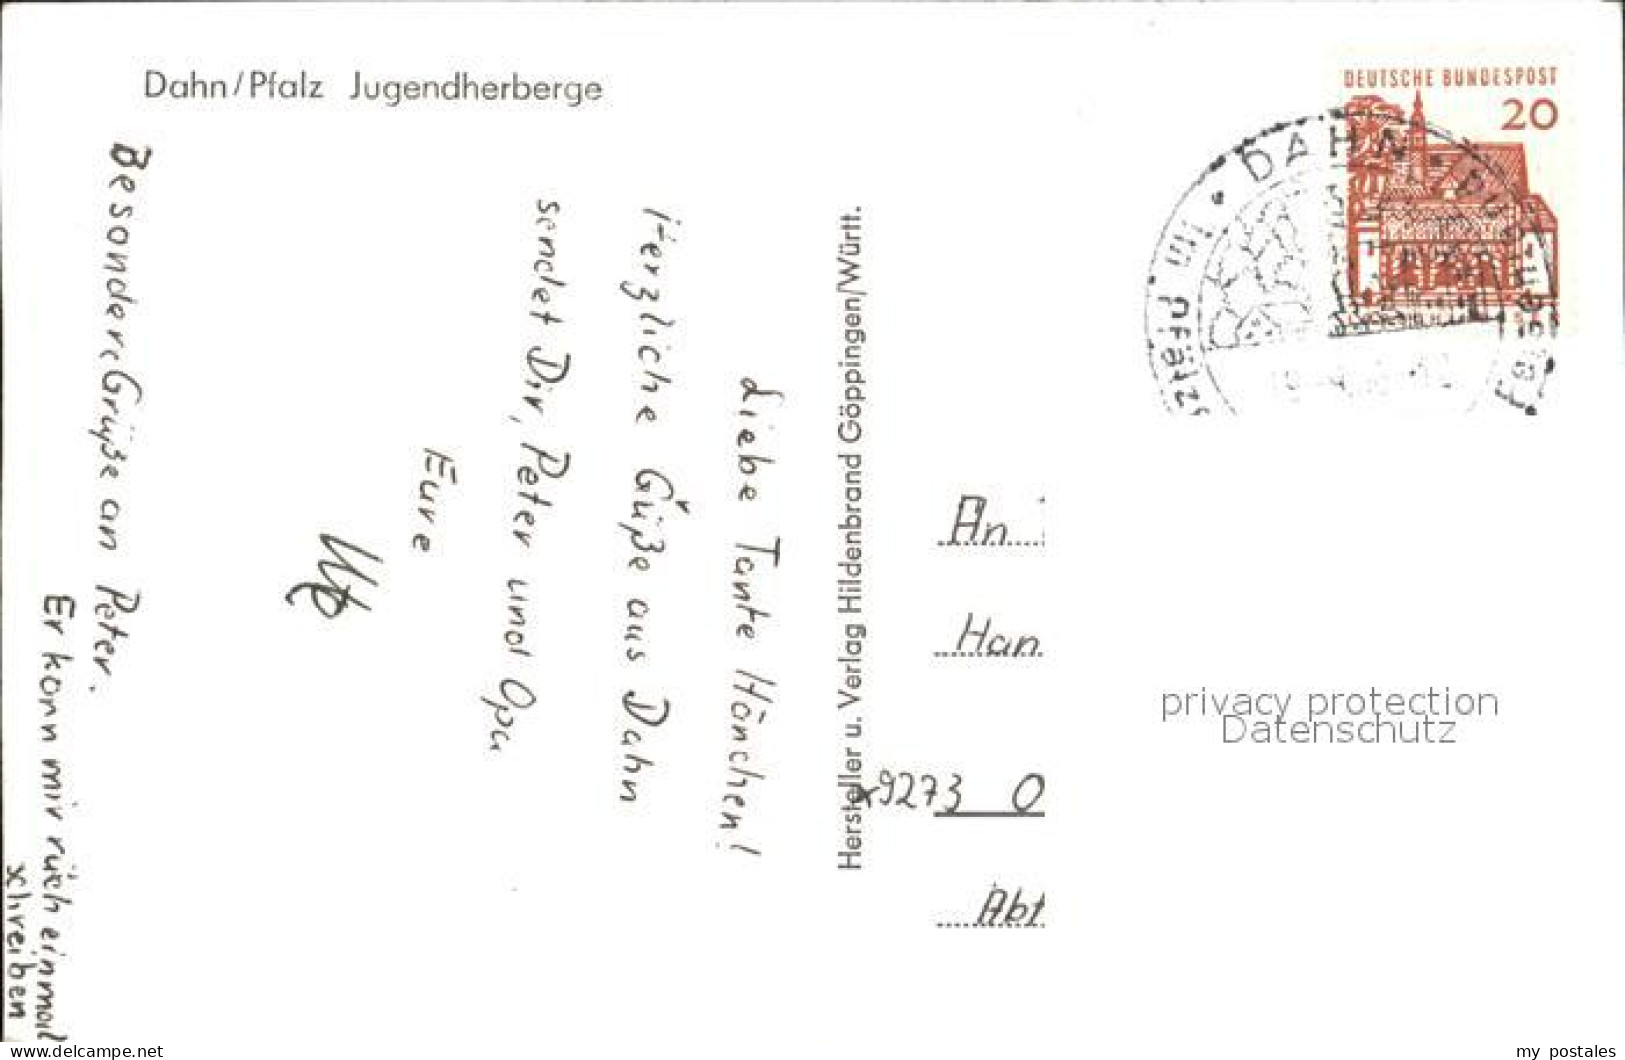 Dahn/Pfalz Jugendherberge
Liebe Tante Hänchen!
Herzliche Grüße aus Dahn
sendet Dir, Peter und Opa
Eure
Ute
Besondere Grüße an Peter.
Er kann mir ruch einmal
schreiben
Hersteller u. Verlag Hildenbrand Göppingen/Württ.
DEUTSCHE BUNDESPOST
20
DAHN
im Pfälz
An
Han
x9273 O
Abt
privacy protection
Datenschutz
www.delcampe.net
my_postales